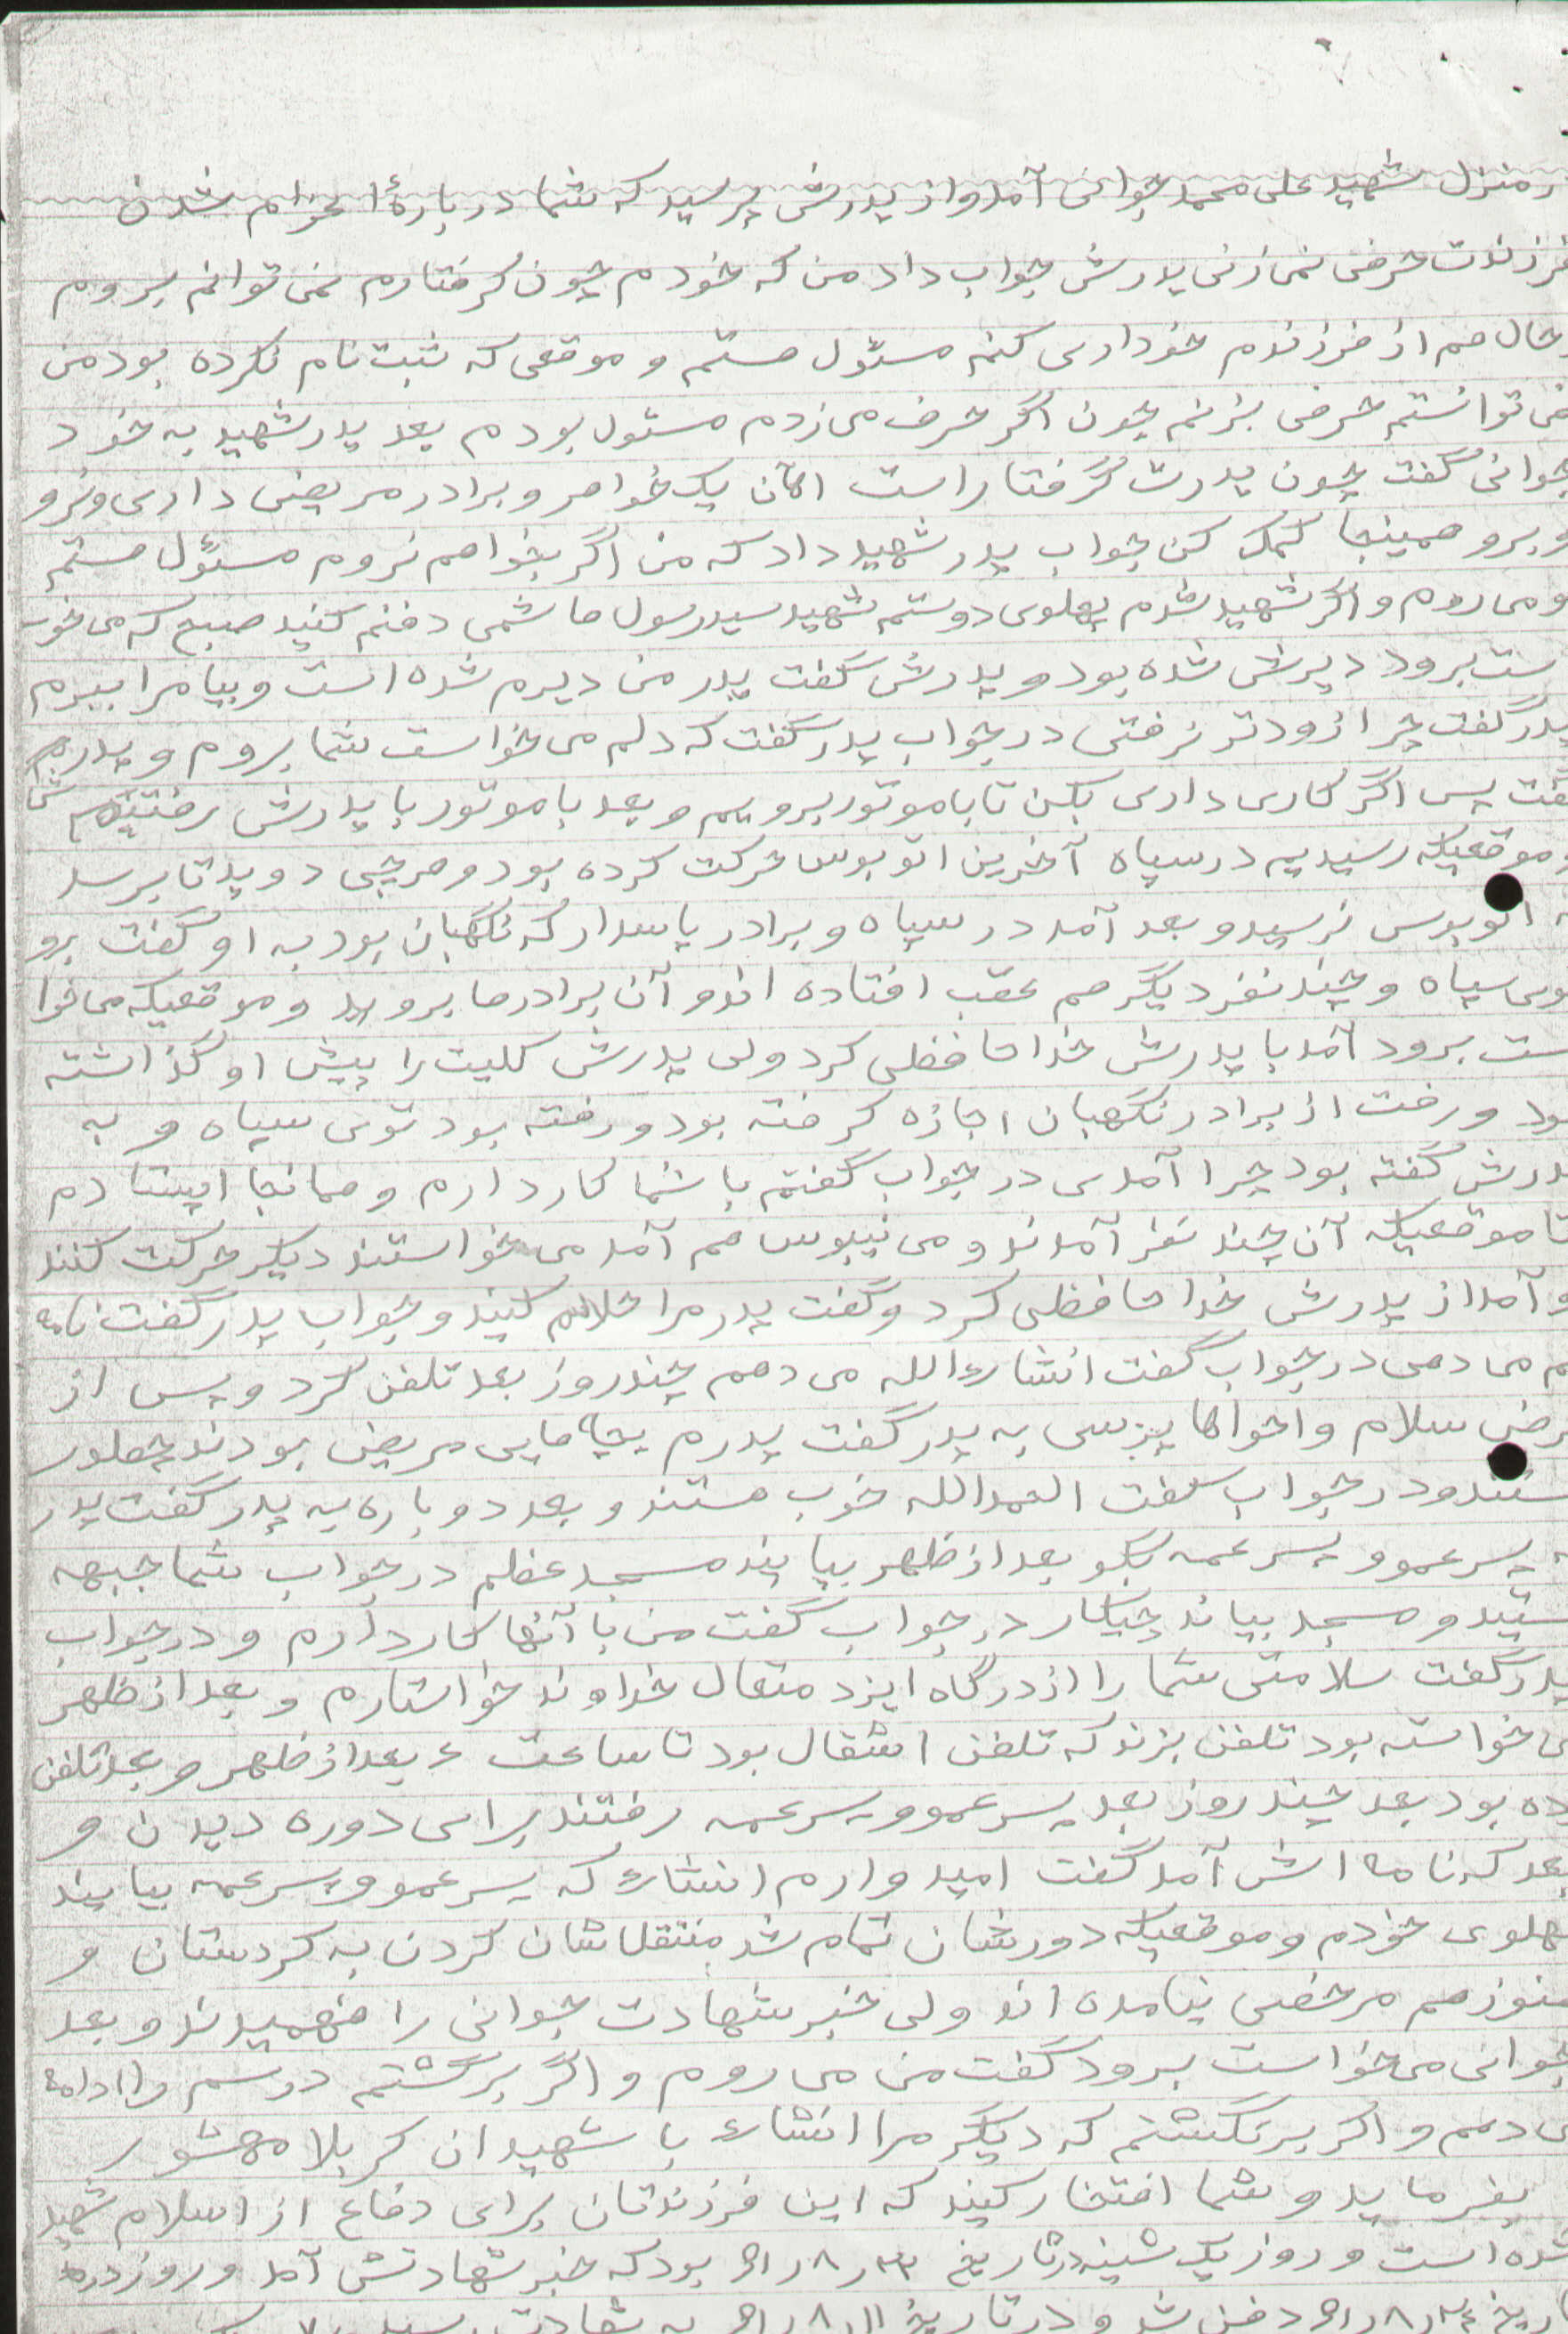 ر منزل شهید علی محمد جوانی آمد و از پدرش پرسید که شما درباره اعزام شدن
فرزندت حرفی نمی زنی پدرش جواب داد من که خودم چون گرفتارم نمی توانم بروم
حال هم از فرزندم خودداری کنم مسئول هستم و موقعی که ثبت نام نکرده بود من
نمی توانستم حرفی بزنم چون اگر حرف می زدم مسئول بودم بعد پدر شهید به خود
جوانی گفت چون پدرت گرفتار است الآن یک خواهر و برادر مریض داری و نرو
و برو همینجا کمک کن جواب پدر شهید داد که من اگر بخواهم نروم مسئول هستم
و می روم و اگر شهید شدم پهلوی دوستم شهید سید رسول هاشمی دفنم کنید صبح که می خو
ست برود دیرش شده بود و پدرش گفت پدر من دیرم شده است و بیا مرا ببرم
پدر گفت چرا زودتر نرفتی در جواب پدر گفت که دلم می خواست شما بروم و پدرم
گفت پس اگر کاری داری بکن تا با موتور برویم و بعد با موتور با پدرش رفتیم
و موقعیکه رسیدیم در سپاه آخرین اتوبوس حرکت کرده بود و هرچی دوید تا برسد
به اتوبوس نرسید و بعد آمد در سپاه و برادر پاسدار که نگهبان بود به او گفت برو
توی سپاه و چند نفر دیگر هم عقب افتاده اند و آن برادرها بروید و موقعیکه می خوا
ست برود آمد با پدرش خداحافظی کرد ولی پدرش کلیت را پیش او گذاشته
بود و رفت از برادر نگهبان اجازه گرفته بود و رفته بود توی سپاه و به
پدرش گفته بود چرا آمدی در جواب گفتم با شما کار دارم و همانجا ایستادم
تا موقعیکه آن چند نفر آمدند و می نیبوس هم آمد می خواستند دیگر حرکت کنند
و آمد از پدرش خداحافظی کرد و گفت پدر مرا حلالم کنید و جواب پدر گفت نامه
هم می دهی در جواب گفت انشاءالله می دهم چند روز بعد تلفن کرد و پس از
عرض سلام و احوالپرسی به پدر گفت پدرم بچه هایی مریض بودند چطور
هستند و در جواب گفت الحمدالله خوب هستند و بعد دوباره به پدر گفت پدر
به پسرعمو و پسرعمه بگو بعد از ظهر بیایند مسجد عظم در جواب شما جبهه
هستید و مسجد بیاند چیکار در جواب گفت من با آنها کار دارم و در جواب
پدر گفت سلامتی شما را از درگاه ایزد متعال خداوند خواستارم و بعد از ظهر
می خواسته بود تلفن بزند که تلفن اشقال بود تا ساعت ۴ بعد از ظهر و بعد تلفن
زده بود بعد چند روز بعد پسرعمو و پسرعمه رفتند برای دوره دیدن و
بعد که نامه اش آمد گفت امیدوارم انشاء که پسرعمو و پسرعمه بیایند
پهلوی خودم و موقعیکه دورشان تمام شد منتقلشان کردن به کردستان و
هنوز هم مرخصی نیامده اند ولی خبر شهادت جوانی را فهمیدند و بعد
جوانی می خواست برود گفت من می روم و اگر برگشتم درسم را ادامه
می دهم و اگر برنگشتم که دیگر مرا انشاء با شهیدان کربلا مهشور
بفرماید و شما افتخار کنید که این فرزندتان برای دفاع از اسلام شهید
شده است و روز یک شنبه در تاریخ بود که خبر شهادتش آمد و روز
تاریخ دفن شد و در تاریخ به شهادت رسید